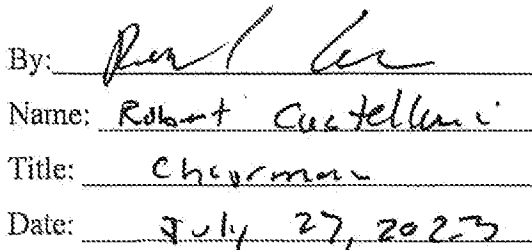 By:
Name: Robert Castellini
Title: Chairman
Date: July 27, 2023